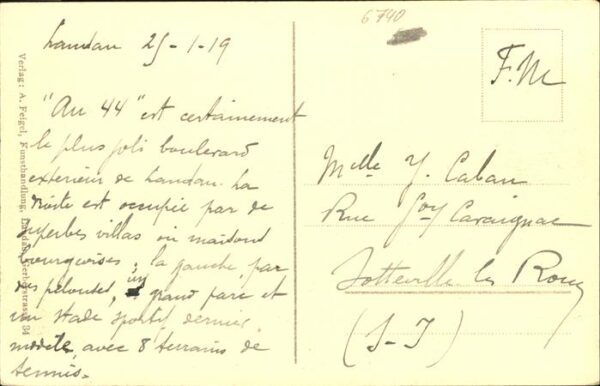 6740
Landau 25-1-19
"Au 44" est certainement
le plus joli boulevard
extérieur de Landau. La
droite est occupée par de
superbes villas ou maisons
bourgeoises; la gauche, par
des pelouses, un grand parc et
un stade sportif dernier
modèle, avec 8 terrains de
tennis.
F.M
Melle Y. Caban
Rue Gor Cavaignac
Sotteville les Rouen
(S-I)
Verlag: A. Feigel, Kunsthandlung, Landau, 34